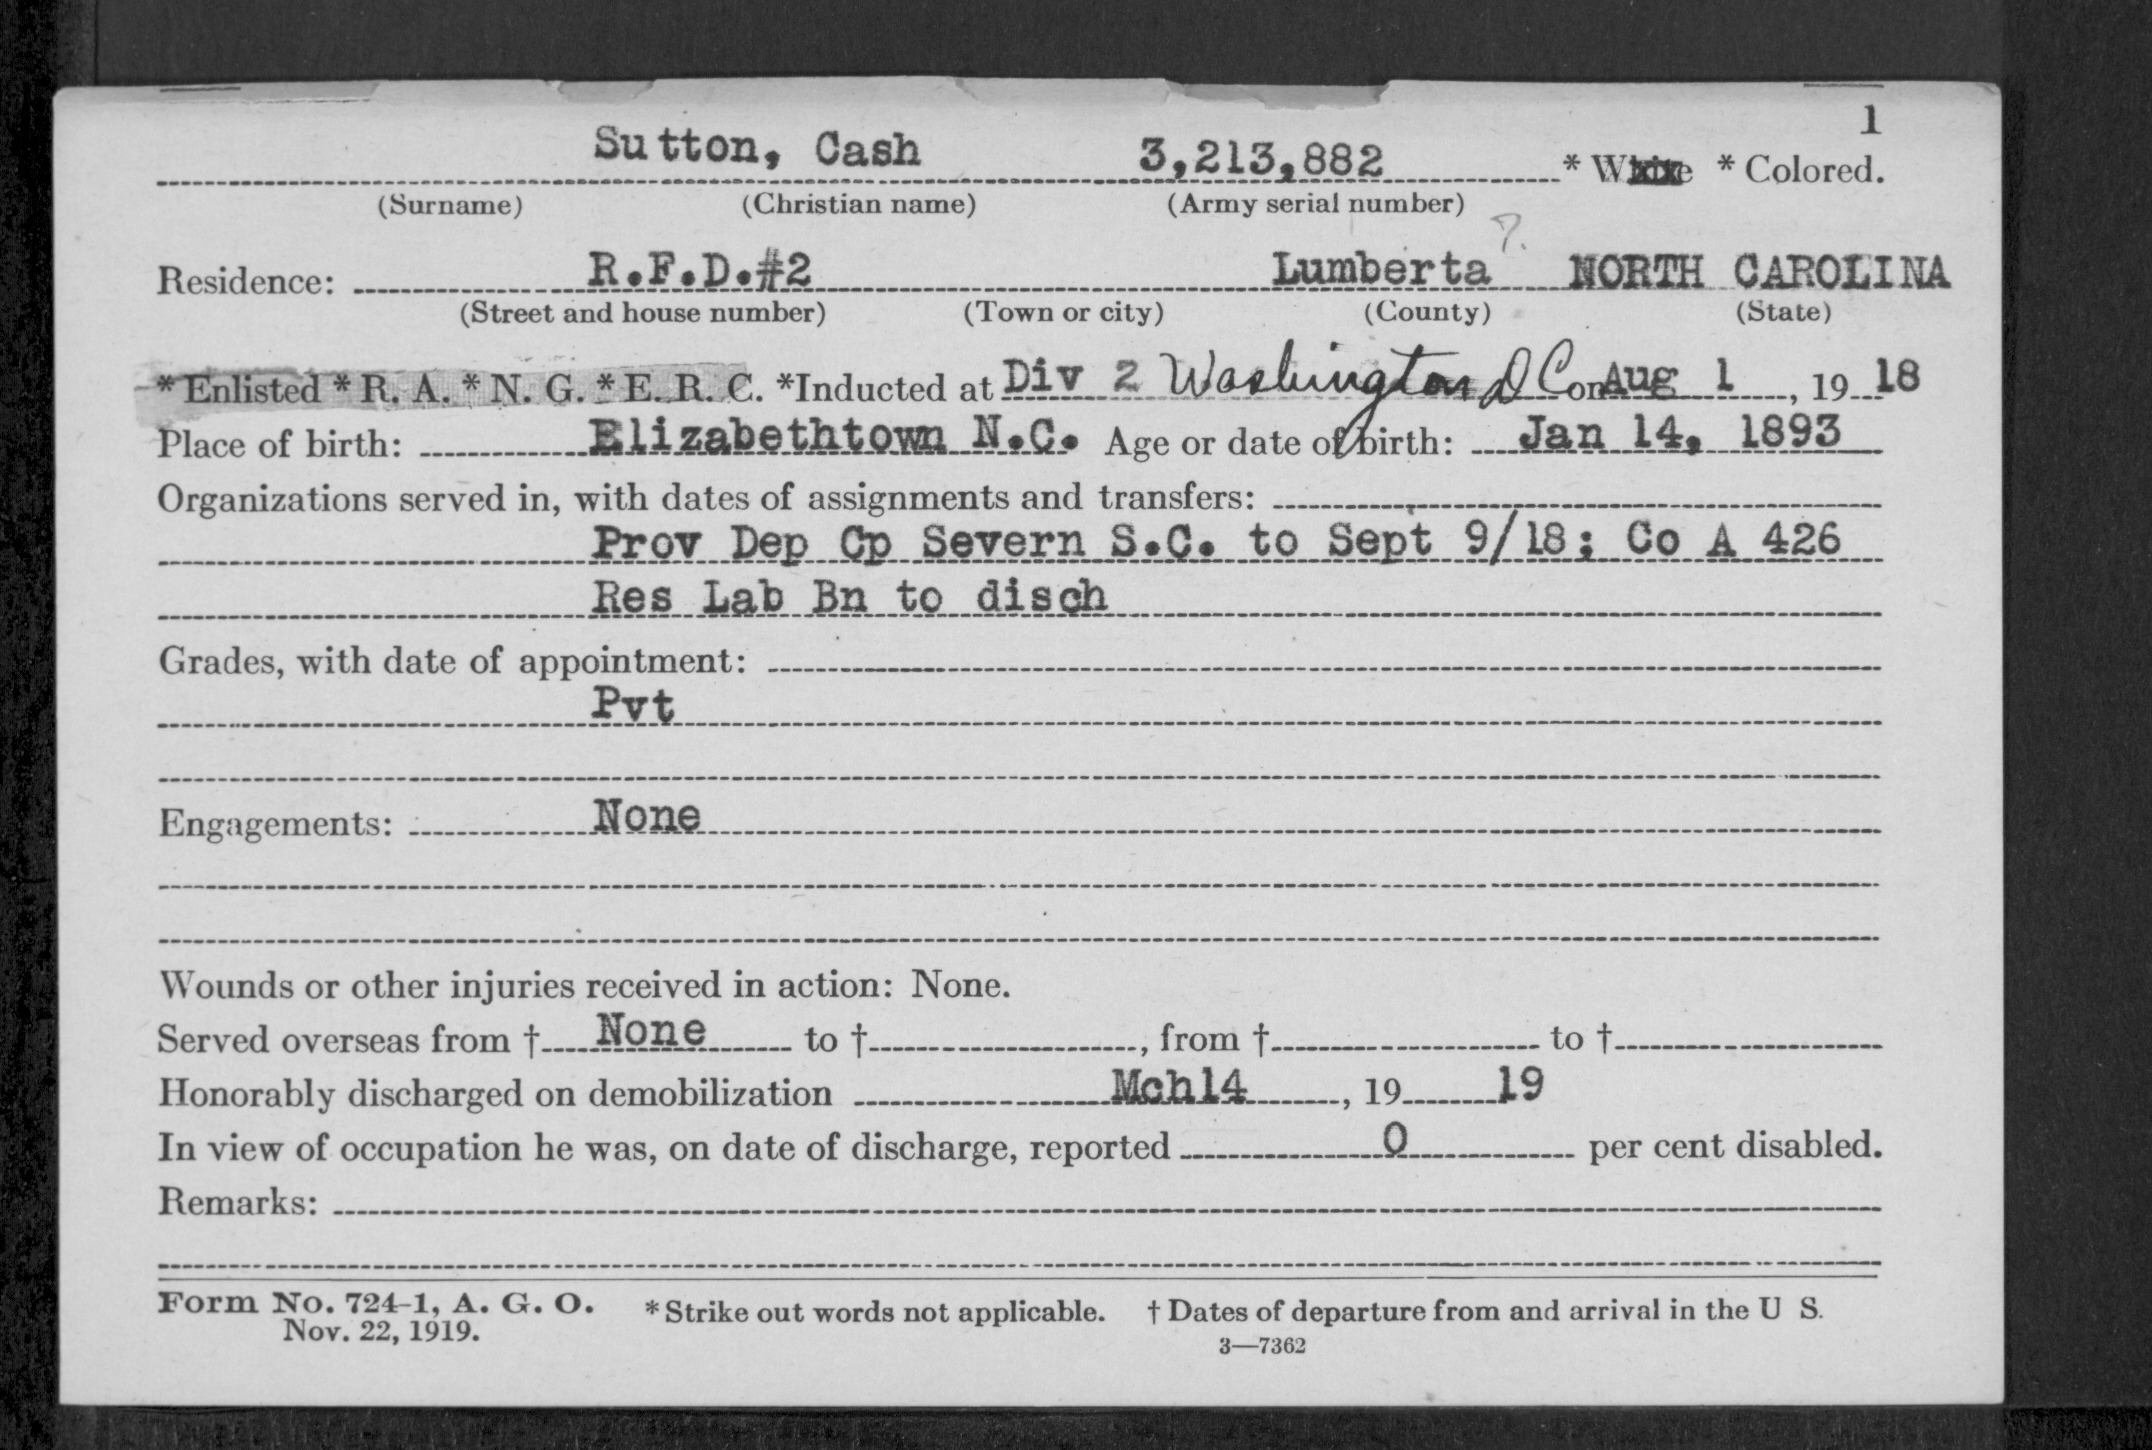 1
Sutton, Cash 3,213,882 * White * Colored.
(Surname) (Christian name) (Army serial number)
?.
Residence: R.F.D.#2 Lumberta NORTH CAROLINA
(Street and house number) (Town or city) (County) (State)
* Enlisted * R. A. * N. G. * E. R. C. *Inducted at Div 2 Washington D C on Aug 1, 19 18
Place of birth: Elizabethtown N.C. Age or date of birth: Jan 14, 1893
Organizations served in, with dates of assignments and transfers:
Prov Dep Cp Severn S.C. to Sept 9/18; Co A 426
Res Lab Bn to disch
Grades, with date of appointment:
Pvt
Engagements: None
Wounds or other injuries received in action: None.
Served overseas from † None to †, from † to †
Honorably discharged on demobilization Mch14, 19 19
In view of occupation he was, on date of discharge, reported 0 per cent disabled.
Remarks:
Form No. 724-1, A. G. O. * Strike out words not applicable. † Dates of departure from and arrival in the U S.
Nov. 22, 1919. 3—7362